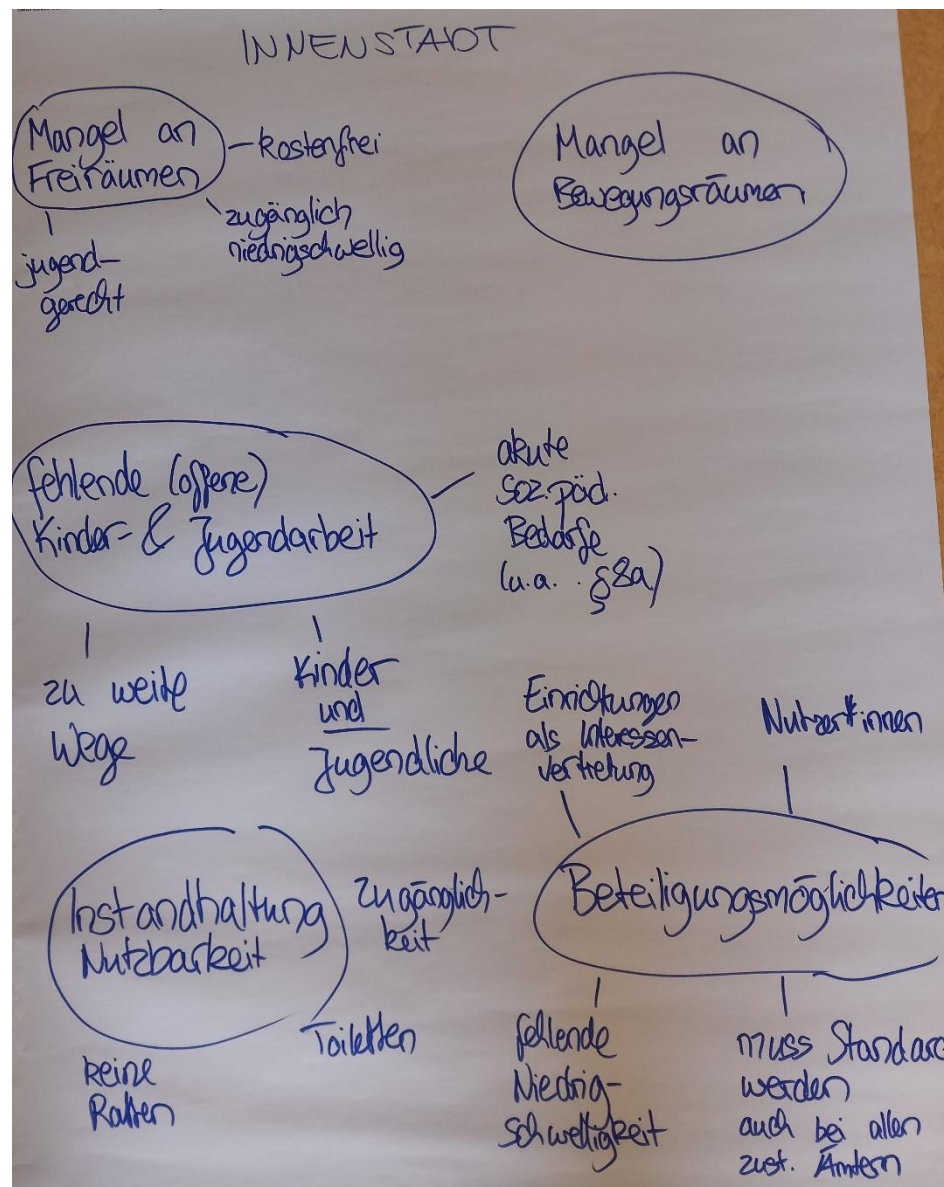 INNENSTADT
Mangel an
Freiräumen
kostenfrei
zugänglich
niedrigschwellig
jugend-
gerecht
Mangel an
Bewegungsräumen
fehlende (offene)
Kinder- & Jugendarbeit
akute
Soz.päd.
Bedarfe
(u.a. §8a)
zu weite
Wege
Kinder
und
Jugendliche
Einrichtungen
als Interessen-
vertretung
Nutzer*innen
Instandhaltung
Nutzbarkeit
Zugänglich-
keit
Toiletten
keine
Ratten
Beteiligungsmöglichkeiten
fehlende
Niedrig-
schwelligkeit
muss Standard
werden
auch bei allen
zust. Ämtern